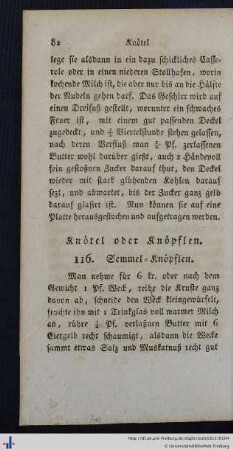 82 Knötel
lege sie alsdann in ein dazu schickliches Casse-
role oder in einen niederen Stollhafen, worin
kochende Milch ist, die aber nur bis an die Hälfte
der Nudeln gehen darf. Das Geschirr wird auf
einen Dreifuß gestellt, worunter ein schwaches
Feuer ist, mit einem gut passenden Deckel
zugedeckt, und ½ Viertelstunde stehen gelassen,
nach deren Verfluß man ¼ Pf. zerlassenen
Butter wohl darüber gießt, auch 2 Händevoll
fein gestoßnen Zucker darauf thut, den Deckel
wieder mit stark glühenden Kohlen darauf
sezt, und abwartet, bis der Zucker ganz gelb
darauf glasirt ist. Nun können sie auf eine
Platte herausgestochen und aufgetragen werden.
Knötel oder Knöpflen.
116. Semmel-Knöpflen.
Man nehme für 6 kr. oder nach dem
Gewicht 1 Pf. Weck, reibe die Kruste ganz
davon ab, schneide den Weck kleingewürfelt,
feuchte ihn mit 1 Trinkglas voll warmer Milch
an, rühre ¼ Pf. verlaßnen Butter mit 6
Eiergelb recht schaumigt, alsdann die Wecke
sammt etwas Salz und Muskatnuß recht gut
© Universitätsbibliothek Freiburg